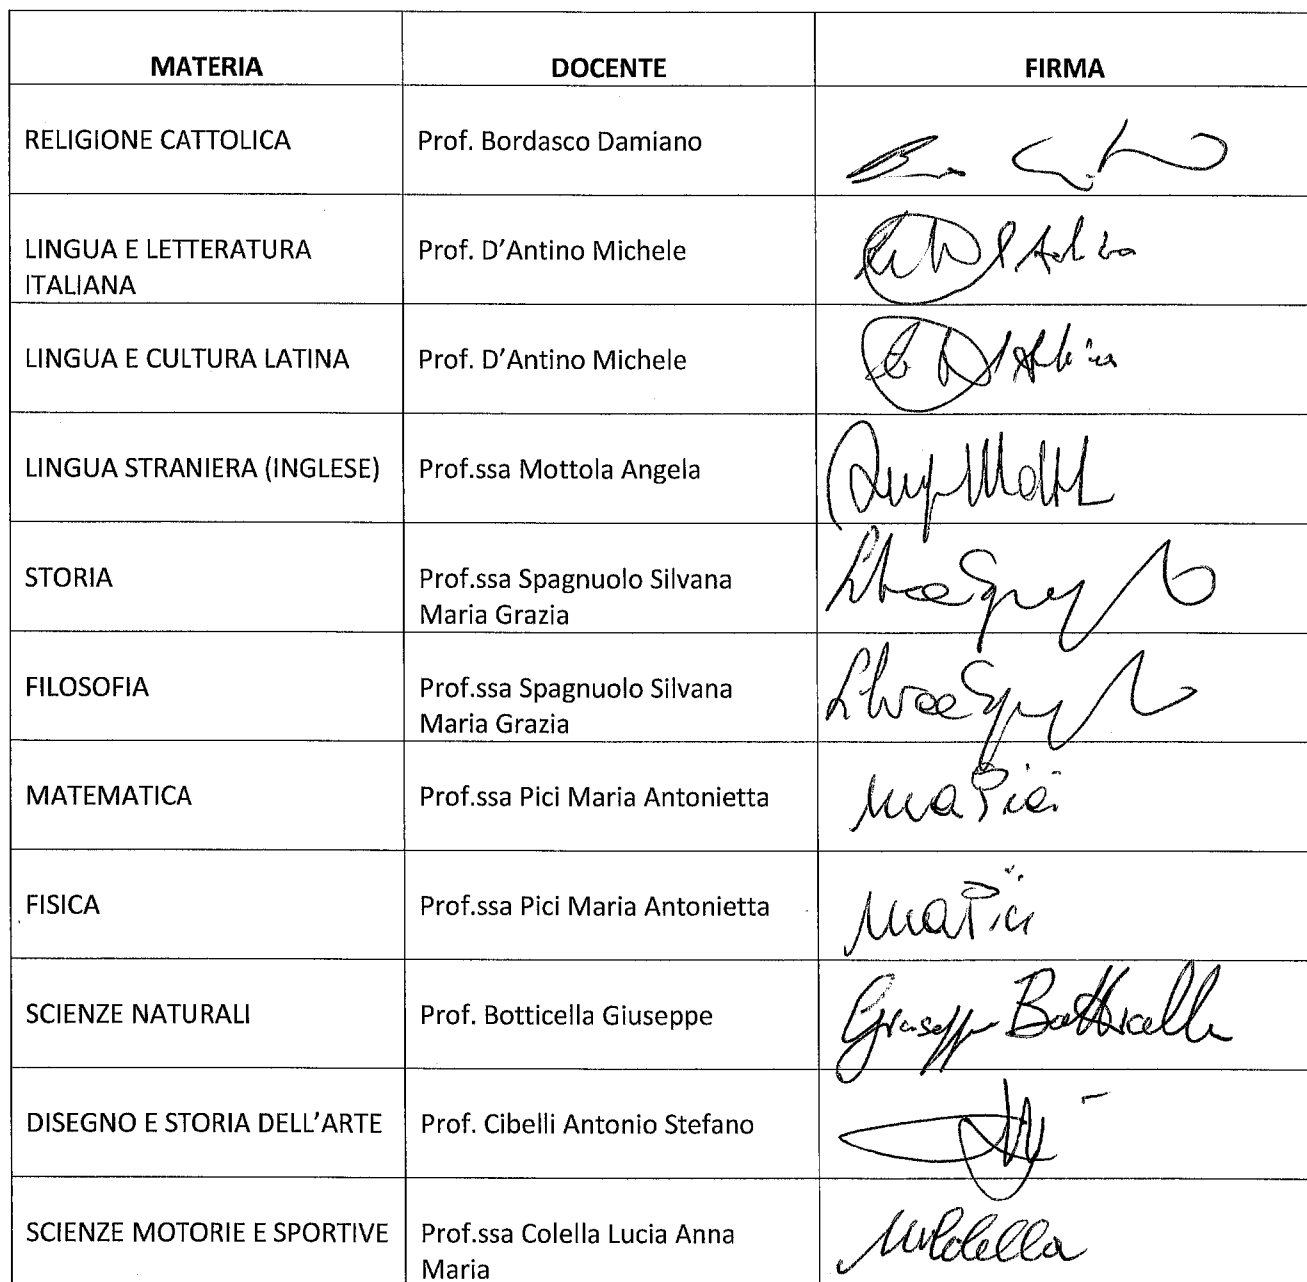 MATERIA DOCENTE FIRMA
RELIGIONE CATTOLICA Prof. Bordasco Damiano
LINGUA E LETTERATURA Prof. D'Antino Michele
ITALIANA
LINGUA E CULTURA LATINA Prof. D'Antino Michele
LINGUA STRANIERA (INGLESE) Prof.ssa Mottola Angela
STORIA Prof.ssa Spagnuolo Silvana
Maria Grazia
FILOSOFIA Prof.ssa Spagnuolo Silvana
Maria Grazia
MATEMATICA Prof.ssa Pici Maria Antonietta
FISICA Prof.ssa Pici Maria Antonietta
SCIENZE NATURALI Prof. Botticella Giuseppe Giuseppe Botticella
DISEGNO E STORIA DELL'ARTE Prof. Cibelli Antonio Stefano
SCIENZE MOTORIE E SPORTIVE Prof.ssa Colella Lucia Anna
Maria